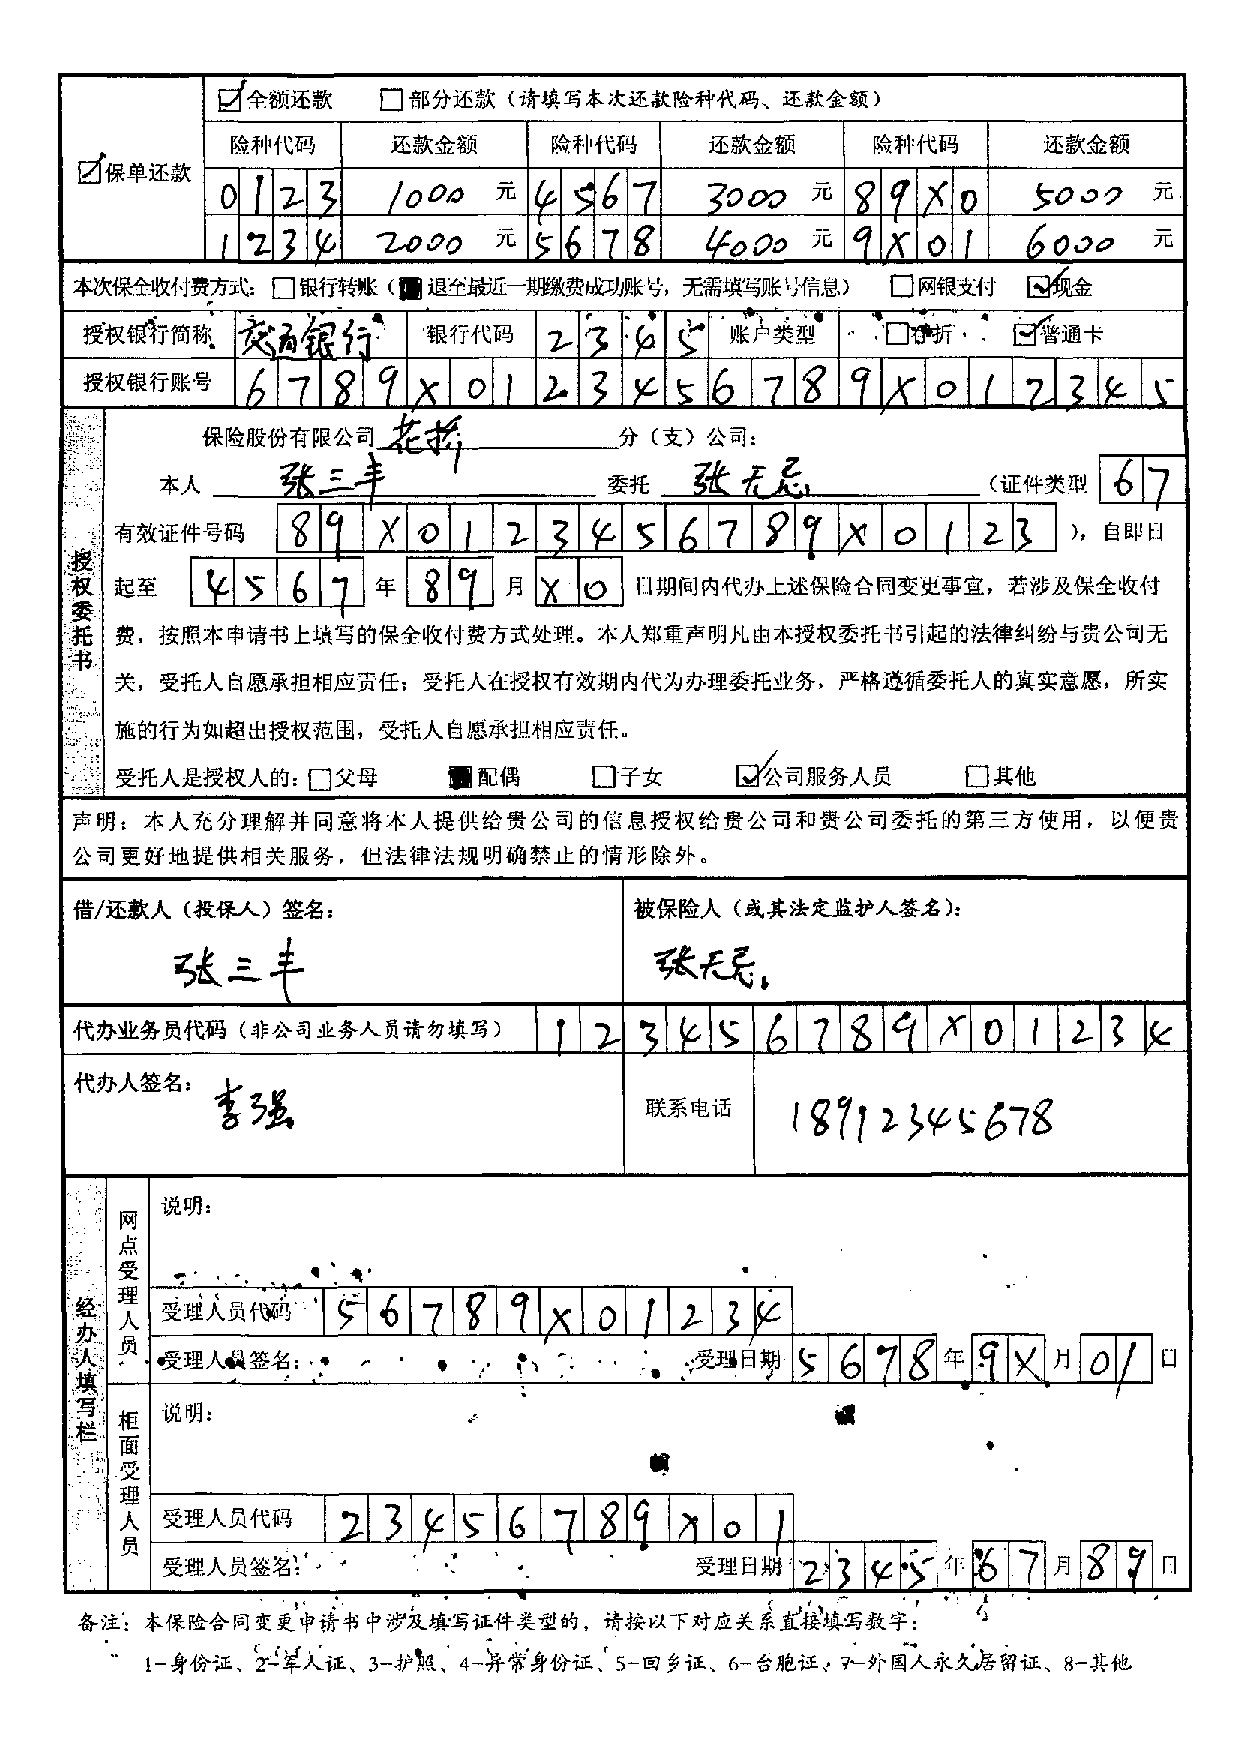 ☑全额还款 □部分还款（请填写本次还款险种代码、还款金额）
险种代码 还款金额 险种代码 还款金额 险种代码 还款金额
☑保单还款
0123 1000 元 4567 3000 元 89X0 5000 元
1234 2000 元 5678 4000 元 9X01 6000 元
本次保全收付费方式：□银行转账（■退至最近一期缴费成功账号，无需填写账号信息） □网银支付 ☑现金
授权银行简称 交通银行 银行代码 2345 账户类型 □存折 ☑普通卡
授权银行账号 6789X0123456789X012345
保险股份有限公司 花桥 分（支）公司：
本人 张三丰 委托 张无忌 （证件类型 67
有效证件号码 89X0123456789X0123 ），自即日
起至 4567 年 89 月 X0 日期间内代办上述保险合同变更事宜，若涉及保全收付
费，按照本申请书上填写的保全收付费方式处理。本人郑重声明凡由本授权委托书引起的法律纠纷与贵公司无
关，受托人自愿承担相应责任；受托人在授权有效期内代为办理委托业务，严格遵循委托人的真实意愿，所实
施的行为如超出授权范围，受托人自愿承担相应责任。
受托人是授权人的：□父母 ■配偶 □子女 ☑公司服务人员 □其他
授权委托书
声明：本人充分理解并同意将本人提供给贵公司的信息授权给贵公司和贵公司委托的第三方使用，以便贵
公司更好地提供相关服务，但法律法规明确禁止的情形除外。
借/还款人（投保人）签名： 被保险人（或其法定监护人签名）：
张三丰 张无忌
代办业务员代码（非公司业务人员请勿填写） 123456789X01234
代办人签名： 李强 联系电话 18912345678
经办人填写栏
网点受理人员
说明：
受理人员代码 56789X01234
受理人员签名： 受理日期 5678 年 9X 月 01 日
柜面受理人员
说明：
受理人员代码 23456789X01
受理人员签名： 受理日期 2345 年 67 月 89 日
备注：本保险合同变更申请书中涉及填写证件类型的，请按以下对应关系直接填写数字：
1-身份证、2-军人证、3-护照、4-异常身份证、5-回乡证、6-台胞证、7-外国人永久居留证、8-其他